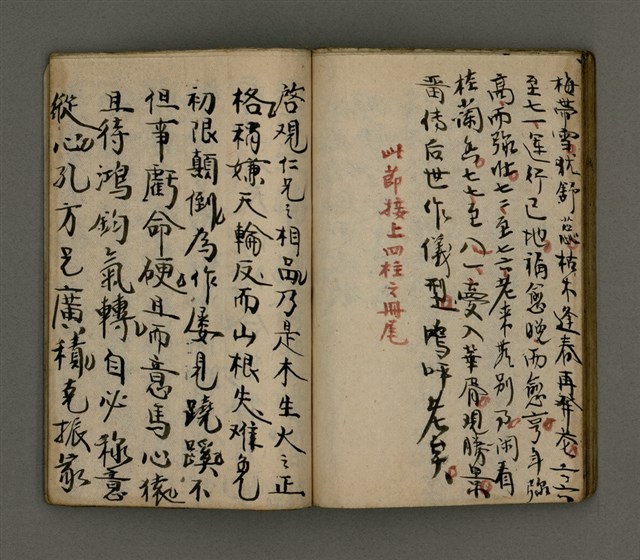 梅帶雪犹舒蕊枯木逢春再發卷六六
至七一運行己地福愈晚而愈亨年弥
高而弥壮七二至七六老来无别及闲看
桂蘭香七七至八一夢入華胥現勝果
留傳后世作儀型嗚呼老矣
此節接上四柱之冊尾
啓观仁兄之相品乃是木生火之正
格稍嫌天輪反而山根失难免
初限顛倒為作屡見蹺蹊不
但事虧命硬且而意馬心猿
且待鴻鈞氣轉自必称意
縱心孔方兄廣積克振家